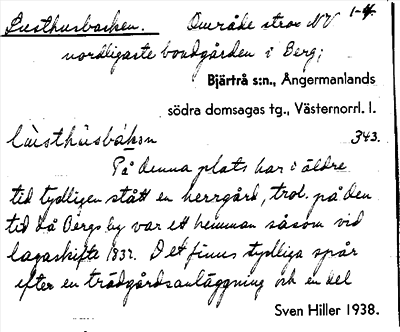 Lusthusbacken. Område strax NV 1-4.
nordligaste bondgården i Berg;
Bjärtrå s:n., Ångermanlands
södra domsagas tg., Västernorrl. l.
lùsthùsbákɔn 343.
På denna plats har i äldre
tid tydligen stått en herrgård, trol. på den
tid då Bergs by var ett hemman såsom vid
lagaskifte 1832. Det finns tydliga spår
efter en trädgårdsanläggning och en del
Sven Hiller 1938.